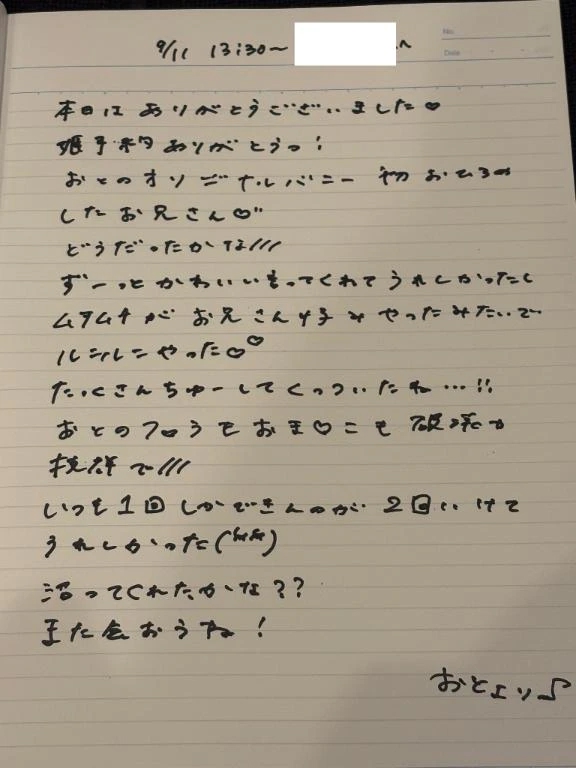 9/11 13:30〜 へ
No.
Date
本日はありがとうございました♡
姫予約ありがとうっ!
おとのオリジナルバニー初おひろめ
したお兄さん♡
どうだったかな///
ずーっとかわいいいってくれてうれしかったし
ムチムチがお兄さん好みやったみたいで
ルンルンやった♡♡
たくさんちゅーしてくっついたね…!!
おとのフロうもおま♡こも破壊力
抜群で///
いつも1回しかできんのが2回いけて
うれしかった
沼ってくれたかな??
また会おうね!
おとより♪